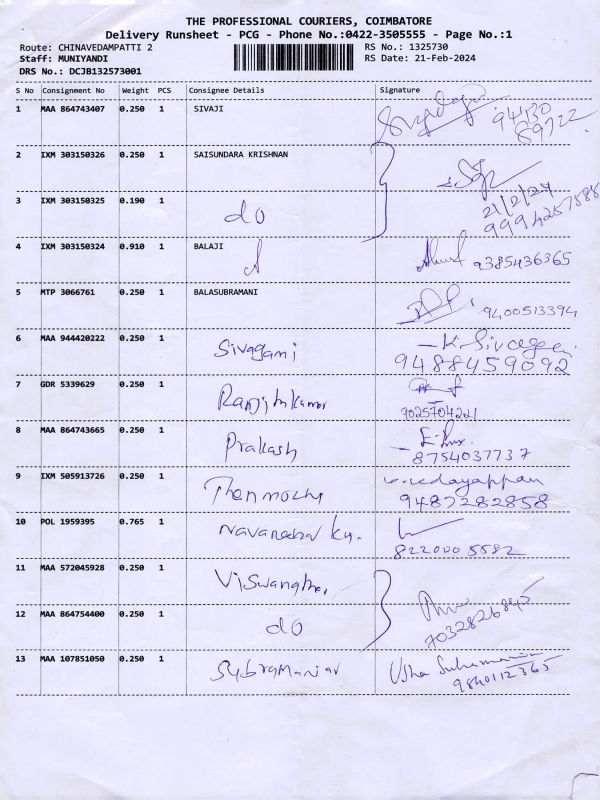 THE PROFESSIONAL COURIERS, COIMBATORE
Delivery Runsheet - PCG - Phone No.:0422-3505555 - Page No.:1
Route: CHINAVEDAMPATTI 2 RS No.: 1325730
Staff: MUNIYANDI RS Date: 21-Feb-2024
DRS No.: DCJB132573001
S No Consignment No Weight PCS Consignee Details Signature
1 MAA 864743407 0.250 1 SIVAJI
94430
89722
2 IXM 303150326 0.250 1 SAISUNDARA KRISHNAN
3 IXM 303150325 0.190 1 do
21/2/24
9994257888
4 IXM 303150324 0.910 1 BALAJI
9385436365
5 MTP 3066761 0.250 1 BALASUBRAMANI
9400513394
6 MAA 944420222 0.250 1 Sivagami
9488459092
7 GDR 5339629 0.250 1 Ranjithkumar
9025704221
8 MAA 864743665 0.250 1 Prakash
8754037737
9 IXM 505913726 0.250 1 Thenmozhi
9487282858
10 POL 1959395 0.765 1
8220005582
11 MAA 572045928 0.250 1
12 MAA 864754400 0.250 1 do
7032826845
13 MAA 107851050 0.250 1 Subramanian Usha
9840112365